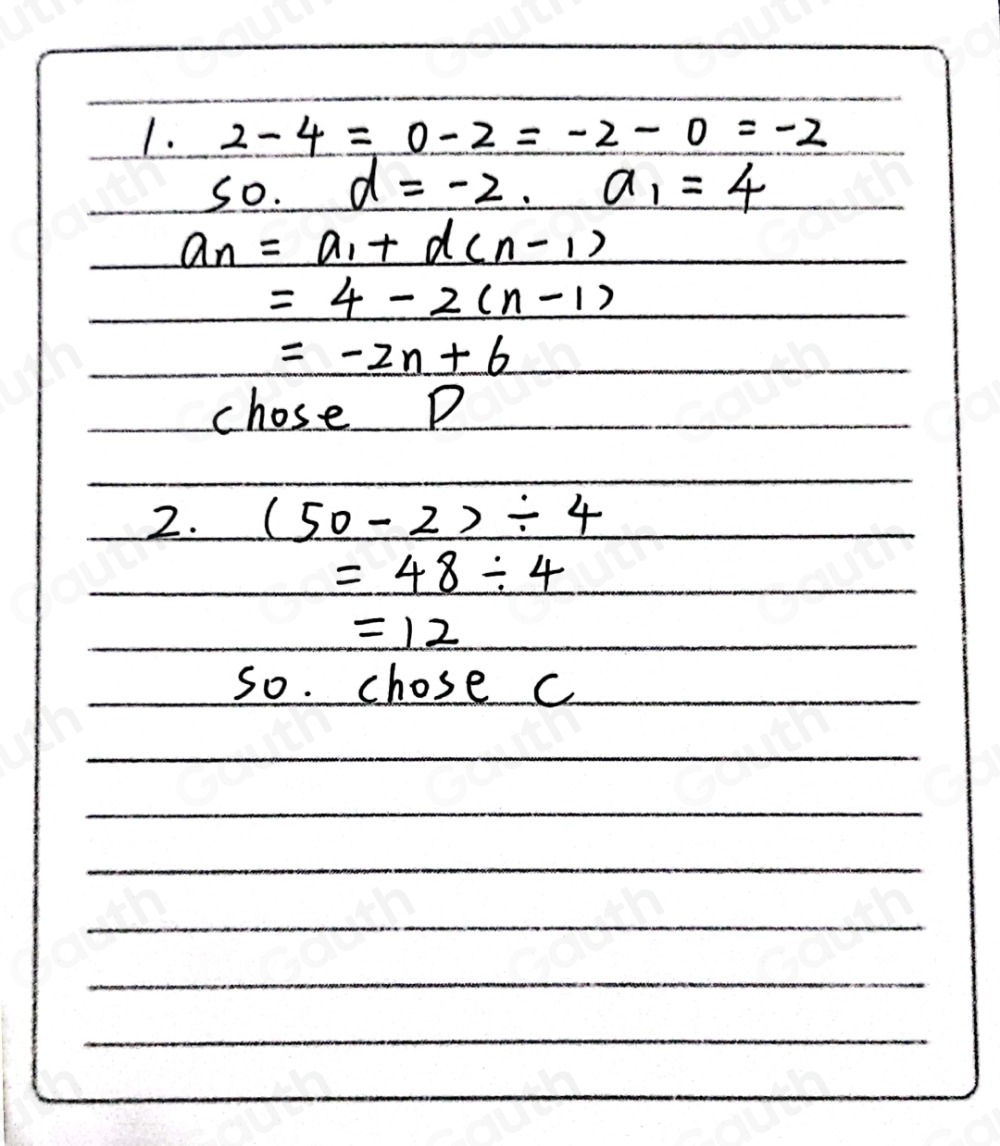 1. 2-4 = 0-2 = -2-0 = -2
so. d = -2. a₁ = 4
an = a₁ + d(n-1)
= 4 - 2(n-1)
= -2n + 6
chose D
2. (50-2) ÷ 4
= 48 ÷ 4
= 12
so. chose C